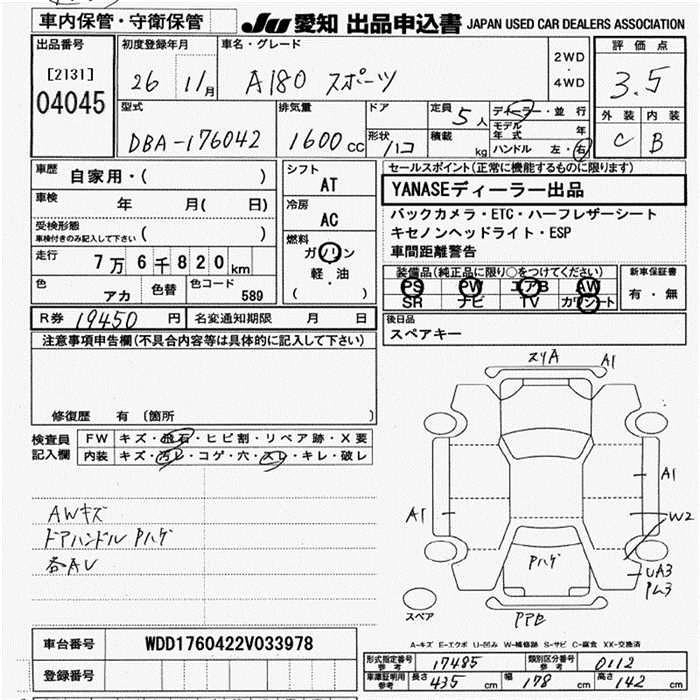 車内保管・守衛保管
JU 愛知 出品申込書 JAPAN USED CAR DEALERS ASSOCIATION
出品番号
[2131]
04045
初度登録年月
26 11月
車名・グレード
A180 スポーツ
2WD
・
4WD
評価点
3.5
外装 内装
C B
型式
DBA-176042
排気量
1600 cc
ドア
形状
ハコ
定員
5人
積載
kg
ディーラー・並行
モデル年式 年
ハンドル 左・右
車歴
自家用・( )
車検
年 月( 日)
受検形態
車検付きのみ記入して下さい
( )
走行
7万6千820km
色
アカ
色替
色コード
589
シフト
AT
冷房
AC
燃料
ガソリン
軽・油
( )
セールスポイント(正常に機能するものに限ります)
YANASEディーラー出品
バックカメラ・ETC・ハーフレザーシート
キセノンヘッドライト・ESP
車間距離警告
装備品(純正品に限り○をつけてください)
PS PW エアB AW
SR ナビ TV カワシート
新車保証書
有・無
R券 19450 円
名変通知期限 月 日
後日品
スペアキー
注意事項申告欄(不具合内容等は具体的に記入して下さい)
修復歴 有 (箇所 )
検査員
記入欄
FW キズ・飛石・ヒビ割・リペア跡・X要
内装 キズ・汚レ・コゲ・穴・スレ・キレ・破レ
AWキズ
ドアハンドルPハゲ
各AU
スリA A1
A1
A1
W2
Pハゲ
UA3
Pム3
スペア
A-キズ E-エクボ U-凹み W-補修跡 S-サビ C-腐食 XX-交換済
車台番号
WDD1760422V033978
登録番号
形式指定番号
参考
17485
類別区分番号
参考
0112
車庫証明用
参考
長さ 435 cm
幅 178 cm
高さ 142 cm